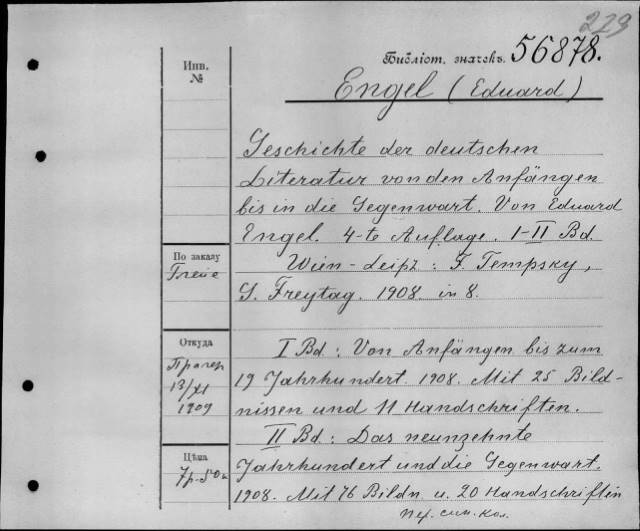 229
Библіот. значекъ 56878.
Инв.
№
Engel (Eduard)
Geschichte der deutschen
Literatur von den Anfängen
bis in die Gegenwart. Von Eduard
Engel. 4-te Auflage. I-II Bd.
По заказу
Wien-Leipz: F. Tempsky,
G. Freytag. 1908. in 8.
Откуда
I Bd: Von Anfängen bis zum
13/XI
1909
19 Jahrhundert. 1908. Mit 25 Bild-
nissen und 11 Handschriften.
II Bd: Das neunzehnte
Цѣна
7р-50к
Jahrhundert und die Gegenwart.
1908. Mit 76 Bildn. u. 20 Handschriften